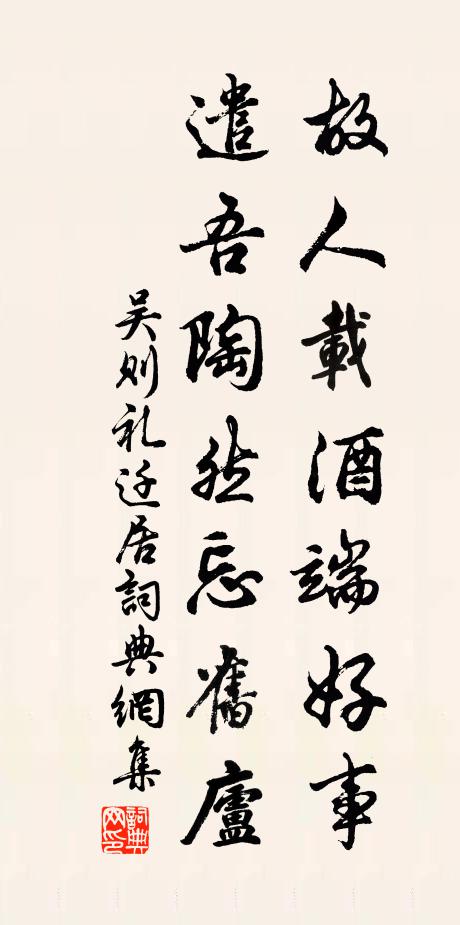 故人載酒端好事
遣吾陶然忘舊廬
吴则礼迁居詞典網集
詞典网印